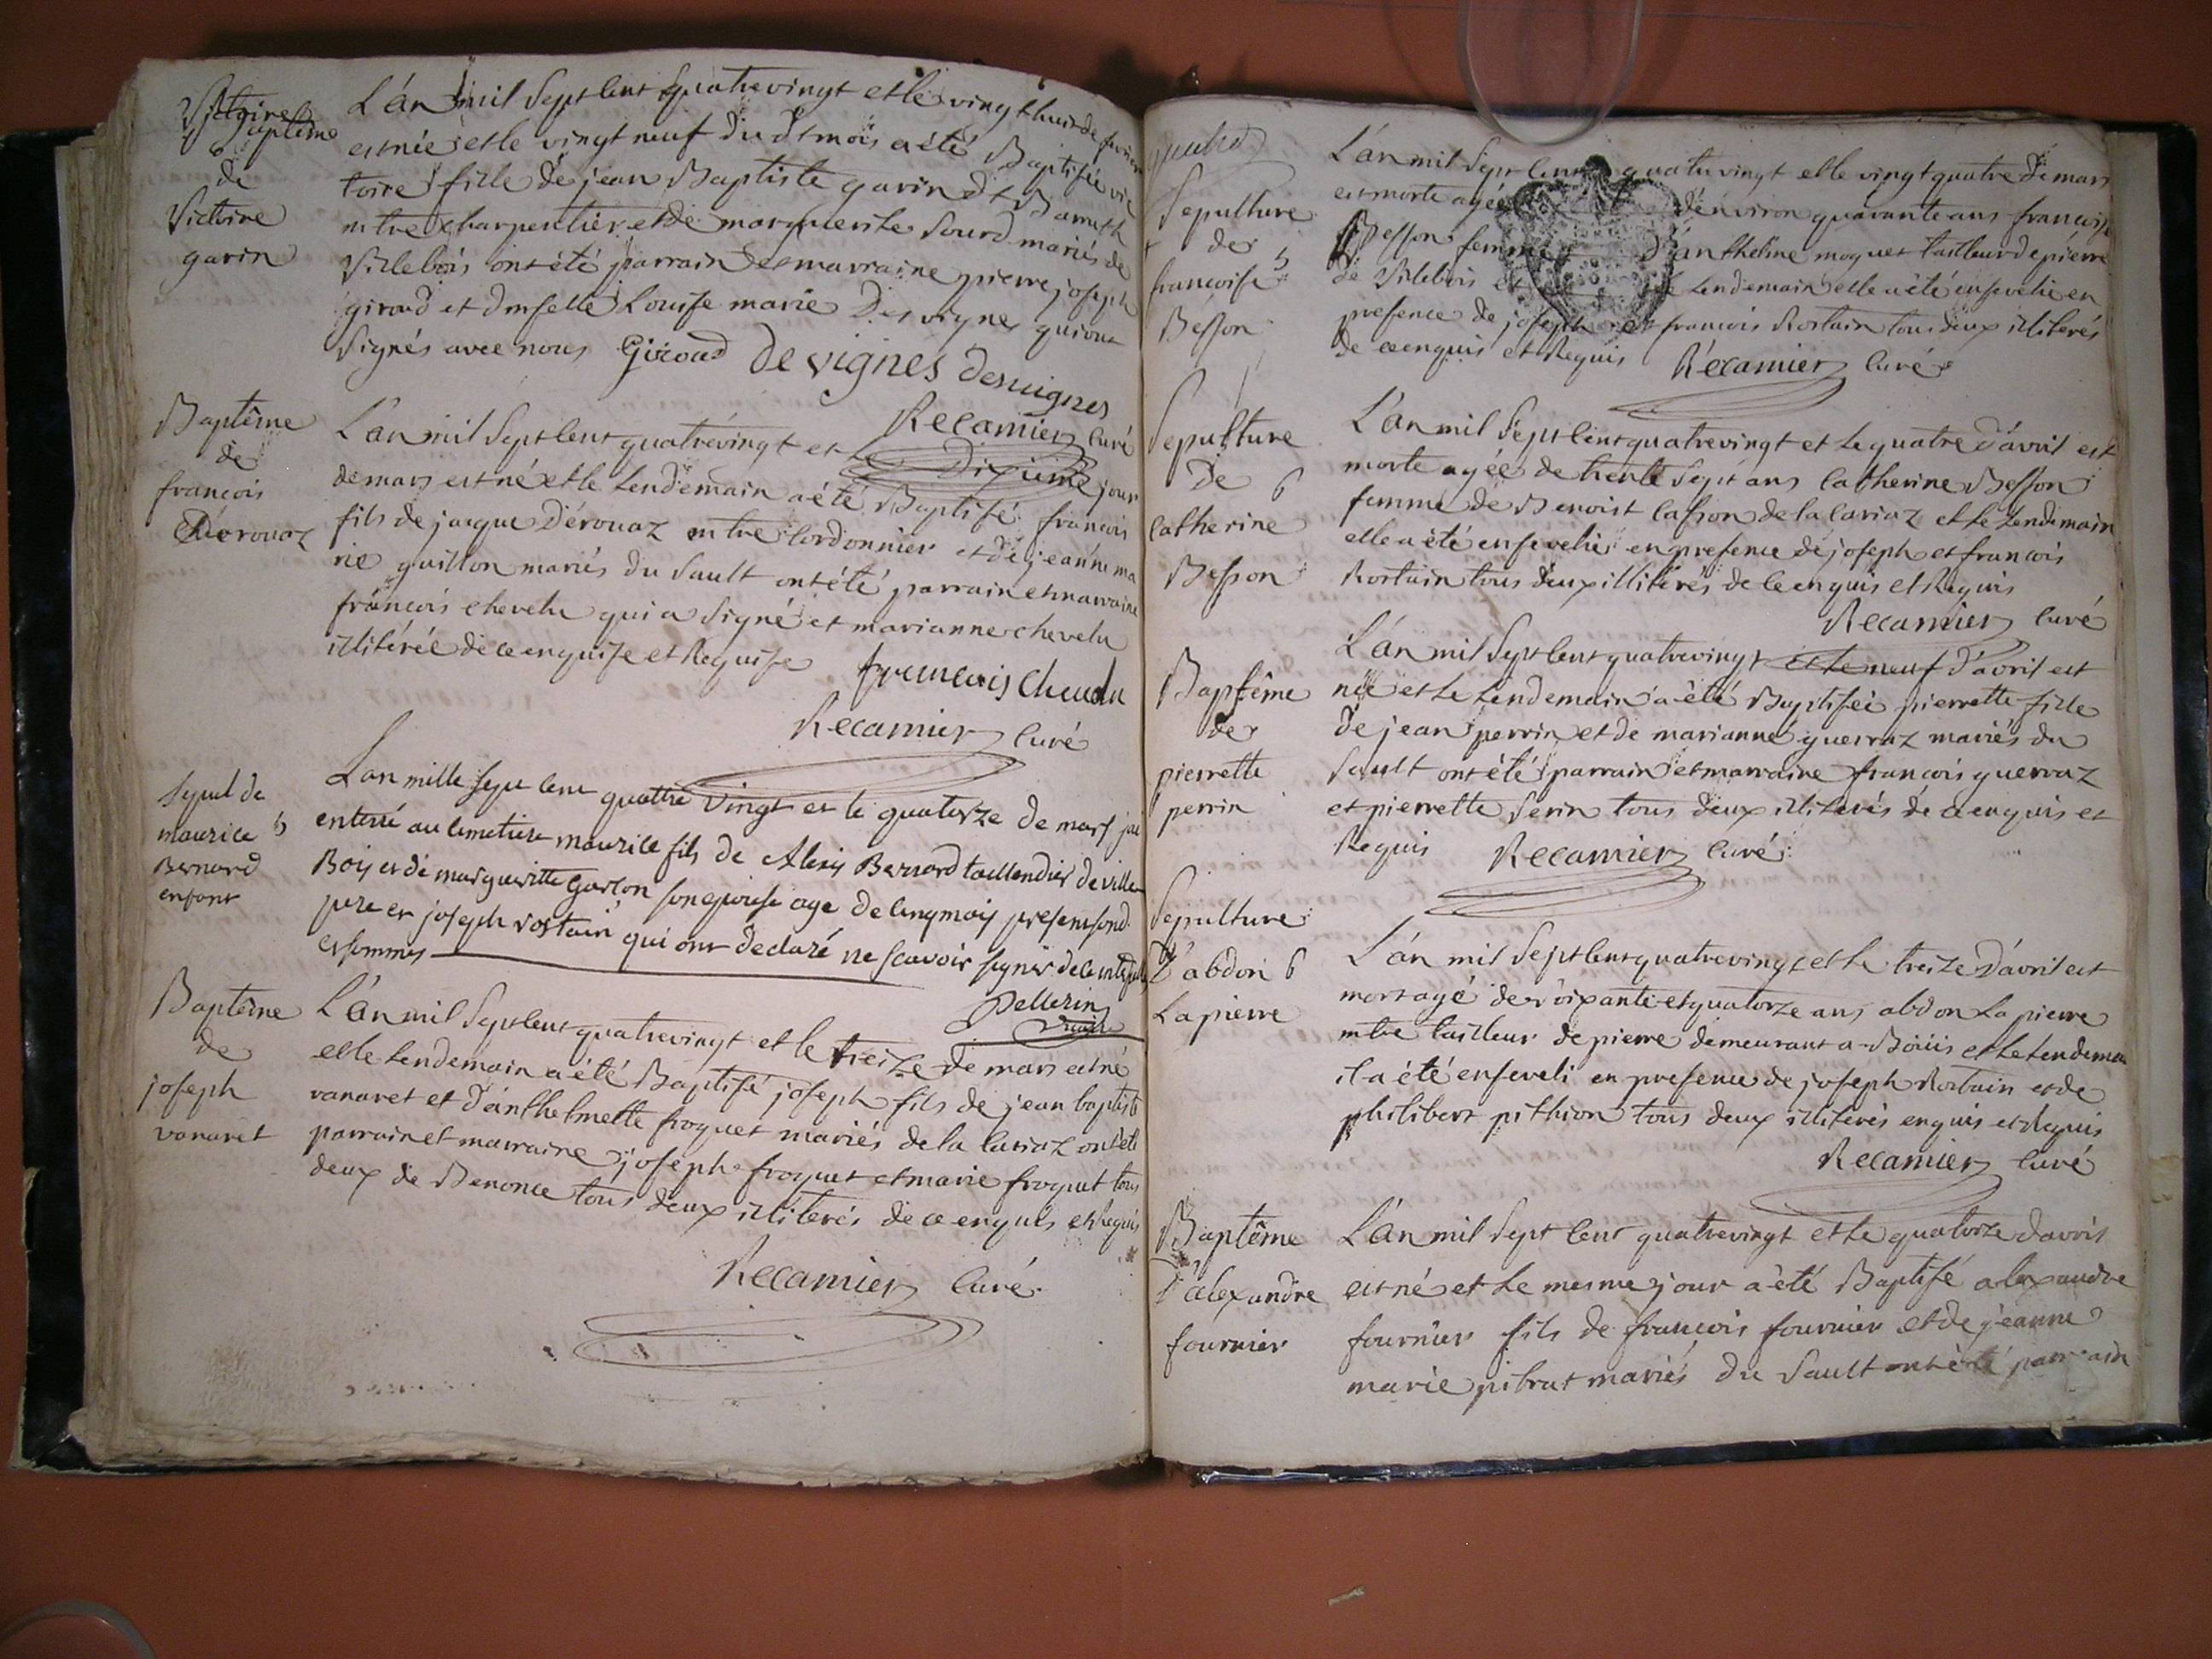 Victoire
Baptême
de
Victoire
garin
L'an mil Sept Cent quatrevingt et le vingt huit de fevrier
est née et le vingt neuf du dt mois a été Baptisée vic
toire fille de jean Baptiste garin dt
mtre charpentier et de marguerite Sourd mariés de
Villebois ont été parrain et marraine pierre joseph
giroud et dmselle Louise marie Desvignes qui ont
Signés avec nous Giroud Devignes Desvignes
Recamier Curé
Baptême
de
françois
Dérouaz
L'an mil Sept Cent quatrevingt et le Dixieme jour
de mars est né et le Lendemain a été Baptisé françois
fils de jaque Dérouaz mtre Cordonnier et de jeanne ma
rie guillon mariés du Sault ont été parrain et marraine
françois chevelu qui a Signé et marianne chevelu
illitérée de ce enquise et Requise francois Cheuelu
Recamier Curé
Sepul de
maurice 5
Bernard
enfant
Lan mille sept cent quattre vingt et le quatorze de mars jai
enterré au cimetiere maurice fils de Alexis Bernard taillendier de ville
Bois et de margueritte garson son epouse age de cinq mois presens sond
pere et joseph rostain qui ont declaré ne scavoir signer de ce interpellés
et sommes
Pellerin
vicaire
Baptême
de
joseph
vanaret
L'an mil Sept Cent quatrevingt et le treize de mars est né
et le Lendemain a été Baptisé joseph fils de jean baptiste
vanaret et d'anthelmette froquet mariés de la Cariaz ont été
parrain et marraine joseph froquet et marie froquet tous
deux de Benonce tous deux illiterés de ce enquis et Requis
Recamier Curé
Sepulture
de
françoise 5
Besson
L'an mil Sept Cent quatrevingt et le vingt quatre de mars
est morte agée d'environ quarante ans françoise
Besson femme d'anthelme moquet tailleur de pierre
de Villebois et le Lendemain elle a été ensevelie en
presence de joseph et françois Rostain tous deux illiterés
de ce enquis et Requis Récamier Curé
Sepulture
De 6
Catherine
Besson
L'an mil Sept Cent quatrevingt et le quatre d'avril est
morte agée de trente Sept ans Catherine Besson
femme de Benoist Casson de la Cariaz et le Lendemain
elle a été ensevelie en presence de joseph et françois
Rostain tous deux illiterés de ce enquis et Requis
Recamier Curé
Baptême
de
pierrette
perrin
L'an mil Sept Cent quatrevingt et le neuf d'avril est
née et le Lendemain a été Baptisée pierrette fille
de jean perrin et de marianne guerraz mariés du
Sault ont été parrain et marraine françois guerraz
et pierrette Serin tous deux illiterés de ce enquis et
Requis Recamier Curé
Sepulture
D'abdon 6
Lapierre
L'an mil Sept Cent quatrevingt et le treize d'avril est
mort agé de Soixante et quatorze ans abdon La pierre
mtre tailleur de pierre demeurant a Boüis et le Lendemain
il a été enseveli en presence de joseph Rostain et de
philibert pithion tous deux illiterés enquis et Requis
Recamier Curé
Baptême
D'alexandre
fournier
L'an mil Sept Cent quatrevingt et le quatorze d'avril
est né et Le mesme jour a été Baptisé alexandre
fournier fils de françois fournier et de jeanne
marie pibrat mariés du Sault ont été parrain